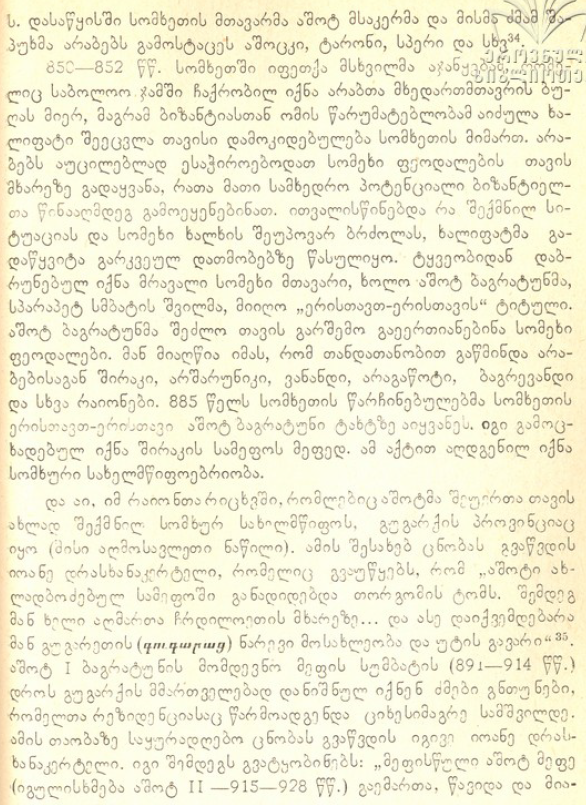 ს. დასაწყისში სომხეთის მთავარმა აშოტ მსაკერმა და მისმა ძმამ შა-
პუხმა არაბებს გამოსტაცეს აშოცკი, ტარონი, სპერი და სხვ³⁴.
850—852 წწ. სომხეთში იფეთქა მსხვილმა აჯანყებამ, რომე-
ლიც საბოლოო ჯამში ჩაქრობილ იქნა არაბთა მხედართმთავრის ბუ-
ღას მიერ, მაგრამ ბიზანტიასთან ომის წარუმატებლობამ აიძულა ხა-
ლიფატი შეეცვლა თავისი დამოკიდებულება სომხეთის მიმართ. არა-
ბებს აუცილებლად ესაჭიროებოდათ სომეხი ფეოდალების თავის
მხარეზე გადაყვანა, რათა მათი სამხედრო პოტენციალი ბიზანტიელ-
თა წინააღმდეგ გამოეყენებინათ. ითვალისწინებდა რა შექმნილ სი-
ტუაციას და სომეხი ხალხის შეუპოვარ ბრძოლას, ხალიფატმა გა-
დაწყვიტა გარკვეულ დათმობებზე წასულიყო. ტყვეობიდან დაბ-
რუნებულ იქნა მრავალი სომეხი მთავარი, ხოლო აშოტ ბაგრატუნმა,
სპარაპეტ სმბატის შვილმა, მიიღო „ერისთავთ-ერისთავის“ ტიტული.
აშოტ ბაგრატუნმა შეძლო თავის გარშემო გაეერთიანებინა სომეხი
ფეოდალები. მან მიაღწია იმას, რომ თანდათანობით გაწმინდა არა-
ბებისაგან შირაკი, არშარუნიკი, ვანანდი, არაგაწოტი, ბაგრევანდი
და სხვა რაიონები. 885 წელს სომხეთის წარჩინებულებმა სომხეთის
ერისთავთ-ერისთავი აშოტ ბაგრატუნი ტახტზე აიყვანეს. იგი გამოც-
ხადებულ იქნა შირაკის სამეფოს მეფედ. ამ აქტით აღდგენილ იქნა
სომხური სახელმწიფოებრიობა.
და აი, იმ რაიონთა რიცხვში, რომლებიც აშოტმა შეუერთა თავის
ახლად შექმნილ სომხურ სახილმწიფოს, გუგარქის პროვინციაც
იყო (მისი აღმოსავლეთი ნაწილი). ამის შესახებ ცნობას გვაწვდის
იოანე დრასხანაკერტელი, რომელიც გვაუწყებს, რომ „აშოტი ახ-
ლადბოძებულ სამეფოში განადიდებდა თორგომის ტომს. შემდეგ
მან ხელი აღმართა ჩრდილოეთის მხარეზე... და ასე დაიქვემდებარა
მან გუგარეთის (գուգարաց) ნარევი მოსახლეობა და უტის გავარი“³⁵.
აშოტ I ბაგრატუნის მომდევნო მეფის სუმბატის (891—914 წწ.)
დროს გუგარქის მმართველებად დანიშნულ იქნენ ძმები გნთუნები,
რომელთა რეზიდენციასაც წარმოადგენდა ციხესიმაგრე სამშვილდე.
ამის თაობაზე საყურადღებო ცნობას გვაწვდის იგივე იოანე დრას-
ხანაკერტელი. იგი შემდეგს გვატყობინებს: „მეფისწული აშოტ მეფე
(იგულისხმება აშოტ II —915—928 წწ.) გაემართა, წავიდა და მია-